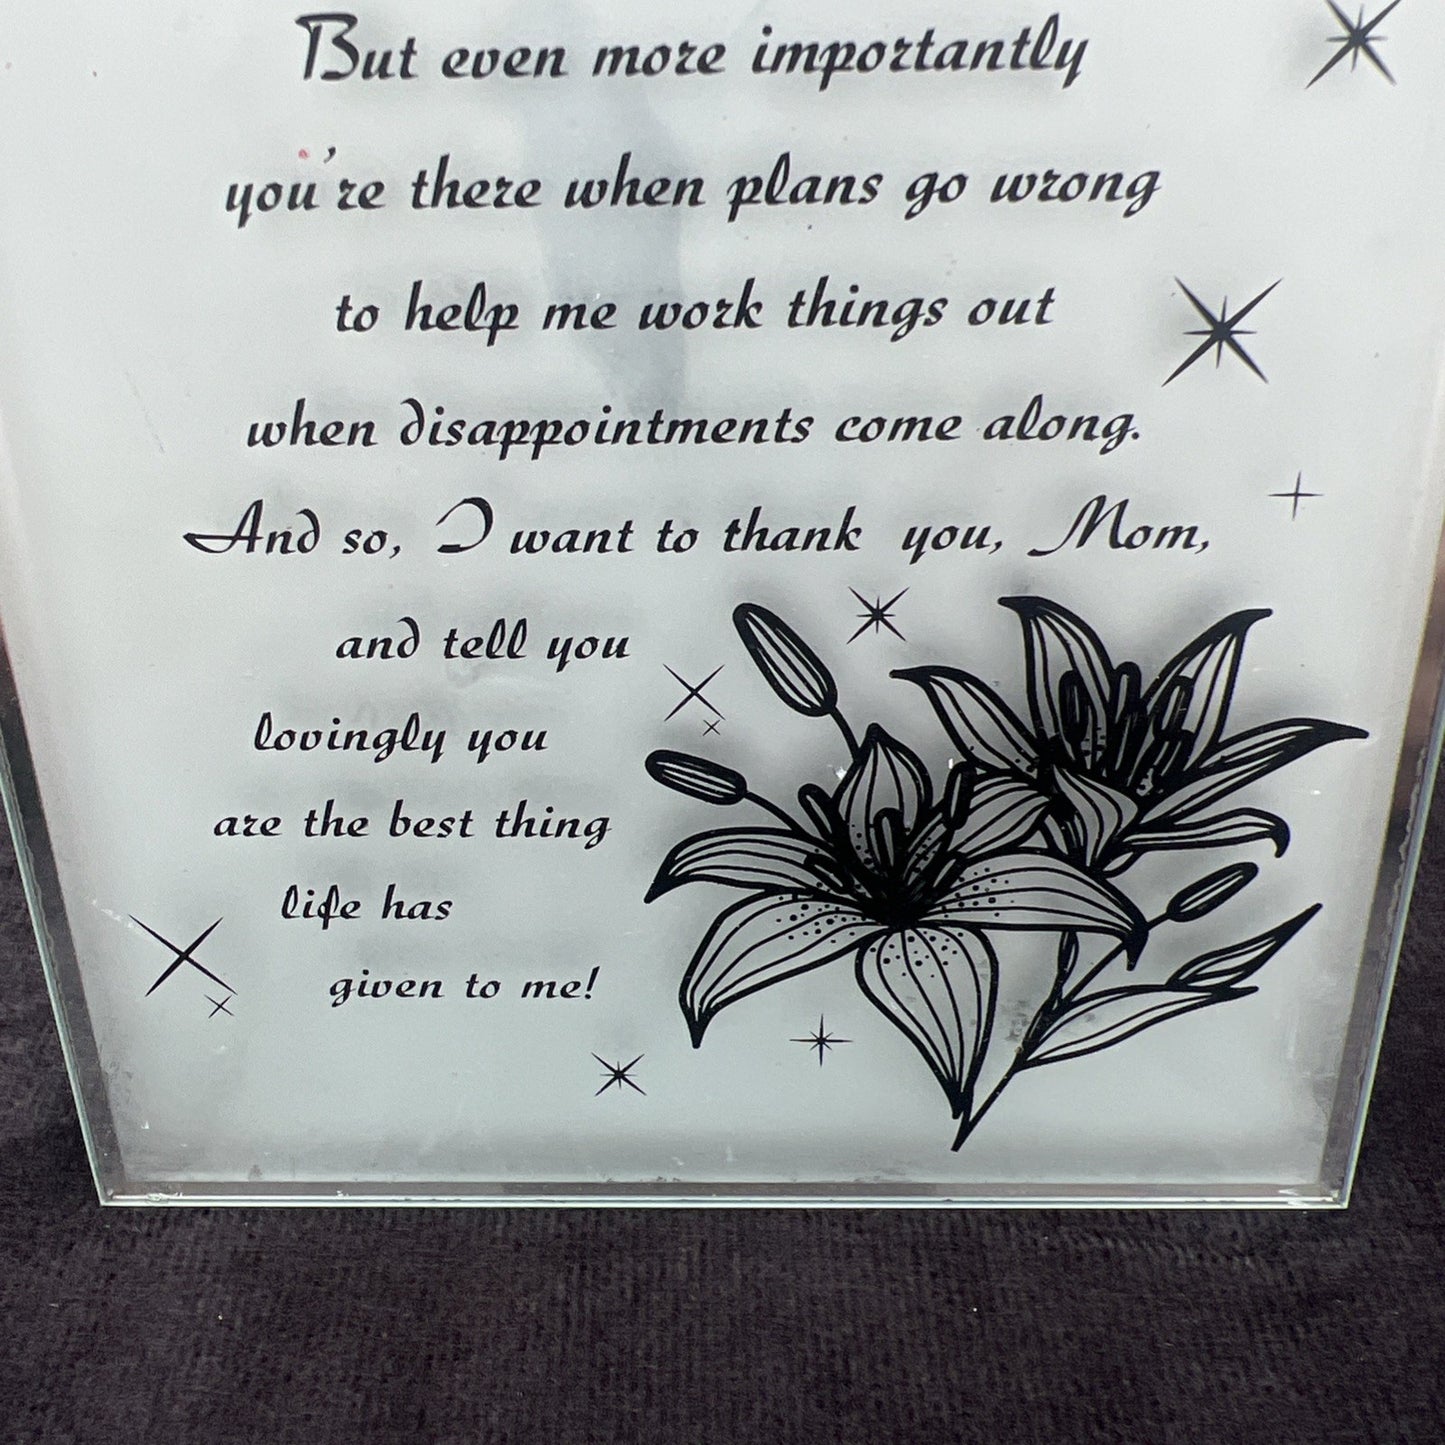 But even more importantly
you're there when plans go wrong
to help me work things out
when disappointments come along.
And so, I want to thank you, Mom,
and tell you
lovingly you
are the best thing
life has
given to me!